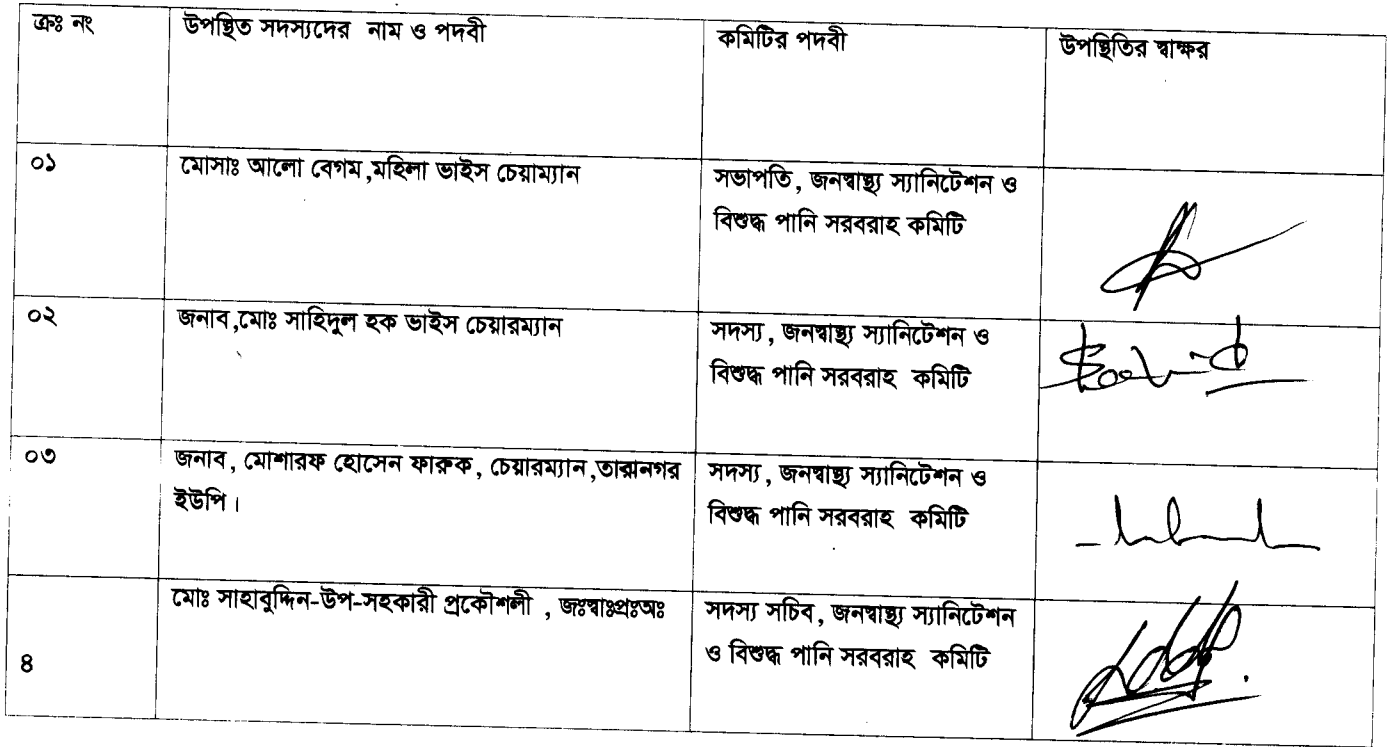 ক্রঃ নং উপস্থিত সদস্যদের নাম ও পদবী কমিটির পদবী উপস্থিতির স্বাক্ষর
০১ মোসাঃ আলো বেগম,মহিলা ভাইস চেয়াম্যান সভাপতি, জনস্বাস্থ্য স্যানিটেশন ও
বিশুদ্ধ পানি সরবরাহ কমিটি
০২ জনাব,মোঃ সাহিদুল হক ভাইস চেয়ারম্যান সদস্য, জনস্বাস্থ্য স্যানিটেশন ও
বিশুদ্ধ পানি সরবরাহ কমিটি
০৩ জনাব, মোশারফ হোসেন ফারুক, চেয়ারম্যান,তারানগর সদস্য, জনস্বাস্থ্য স্যানিটেশন ও
ইউপি। বিশুদ্ধ পানি সরবরাহ কমিটি
মোঃ সাহাবুদ্দিন-উপ-সহকারী প্রকৌশলী , জঃস্বাঃপ্রঃঅঃ সদস্য সচিব, জনস্বাস্থ্য স্যানিটেশন
৪ ও বিশুদ্ধ পানি সরবরাহ কমিটি